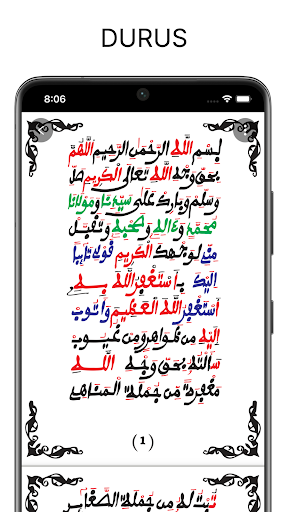 DURUS
8:06
بسم الله الرحمن الرحيم اللهم
بحق وجه الله تعالى الكريم صل
وسلم وبارك على سيدنا ومولانا
محمد وءاله وصحبه وتقبل
منى لوجهك الكريم قولى تايبا
إليك أستغفر الله به
أستغفر الله العظيم وأتوب
إليه من ظواهر ومن عيوب
سألته بحق وجه الله
مغفرة من جملة المناهى
(1)
تبت له من جملة الصغاير